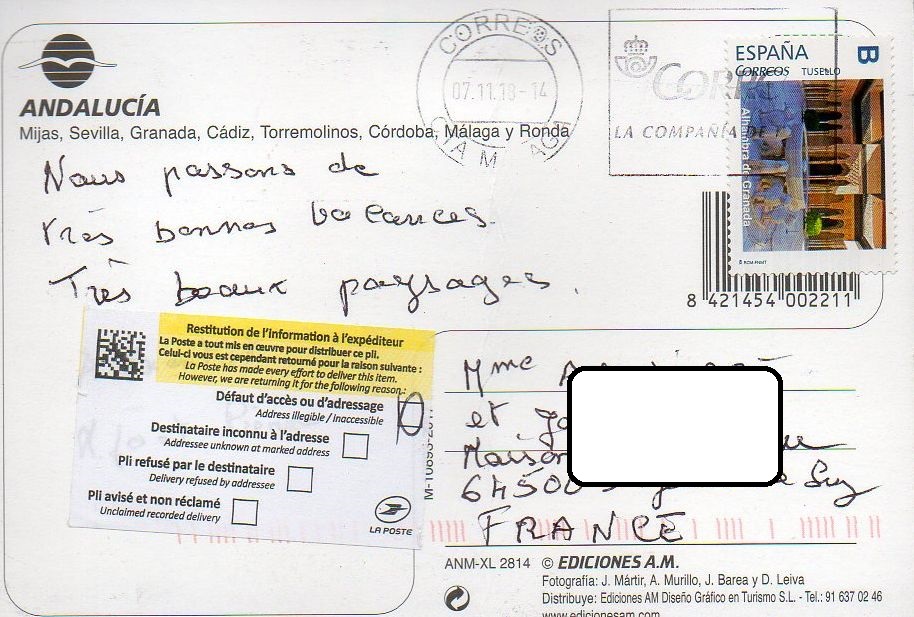 CORREOS
07.11.18-14
CORREOS
LA COMPAÑÍA DE
ESPAÑA
CORREOS TUSELLO
B
Alhambra de Granada
ANDALUCÍA
Mijas, Sevilla, Granada, Cádiz, Torremolinos, Córdoba, Málaga y Ronda
Nous passons de
très bonnes vacances.
Très beaux paysages.
8 421454 002211
Restitution de l'information à l'expéditeur
La Poste a tout mis en œuvre pour distribuer ce pli.
Celui-ci vous est cependant retourné pour la raison suivante :
La Poste has made every effort to deliver this item.
However, we are returning it for the following reason:
Défaut d'accès ou d'adressage
Address illegible / Inaccessible
Destinataire inconnu à l'adresse
Addressee unknown at marked address
Pli refusé par le destinataire
Delivery refused by addressee
Pli avisé et non réclamé
Unclaimed recorded delivery
LA POSTE
Mme
et
Maison
64500
FRANCE
ANM-XL 2814 © EDICIONES A.M.
Fotografía: J. Mártir, A. Murillo, J. Barea y D. Leiva
Distribuye: Ediciones AM Diseño Gráfico en Turismo S.L. - Tel.: 91 637 02 46
www.edicionesam.com